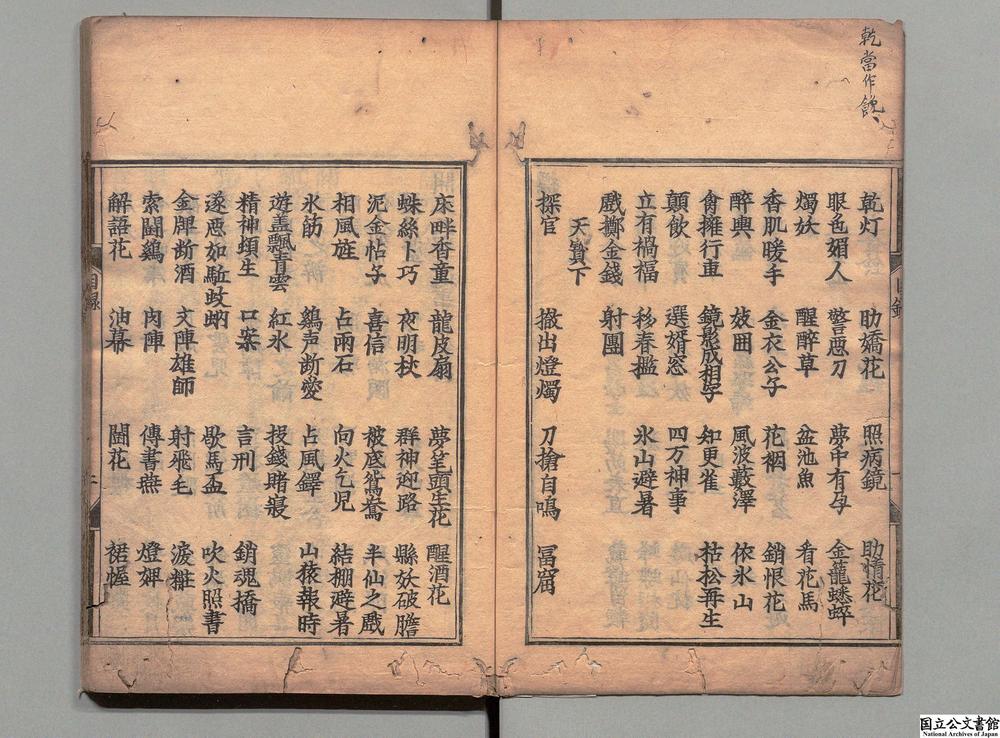 乾當作饞
乾灯　助嬌花　照病鏡　助情花
眼色媚人　警惡刀　夢中有孕　金籠蟋蟀
燭妖　醒醉草　盆池魚　看花馬
香肌暖手　金衣公子　花裀　銷恨花
醉輿　妓囲　風波藪澤　依氷山
肏擁行車　鏡影成相字　知更雀　枯松再生
顛飲　選婿窓　四万神事
立有禍福　移春檻　氷山避暑
戲擲金錢　射團
天寶下
探官　撤出燈燭　刀搶自鳴　冨窟
床畔香童　龍皮扇　夢笔頭生花　醒酒花
蛛絲卜巧　夜明杖　群神迎路　縣妖破膽
泥金帖子　喜信　被底鴛鴦　半仙之戲
相風旌　占雨石　向火乞児　結棚避暑
氷筯　鷄声断愛　占風鐸　山猿報時
遊盖飄青雲　紅氷　投錢賭寢
精神頓生　口案　言刑　銷魂橋
遂惡如駈蚊蚋　歇馬盃　吹火照書
金牌断酒　文陣雄師　射飛毛　淚粧
索鬪鷄　肉陣　傳書燕　燈婢
解語花　油幕　鬪花　裙幄
目録
国立公文書館
National Archives of Japan